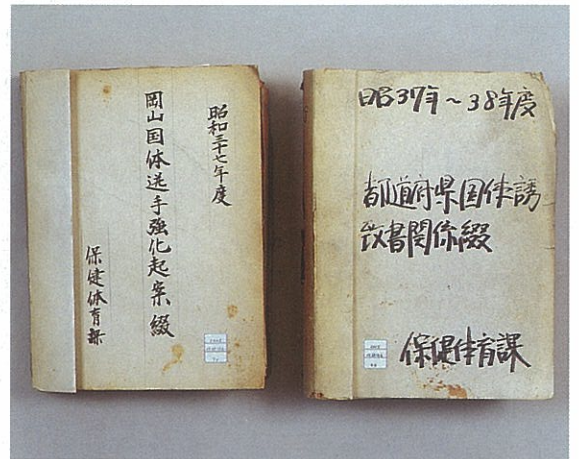 昭和三十七年度
岡山国体選手強化起案綴
保健体育課
昭37年～38年度
都道府県国体誘
致書関係綴
保健体育課